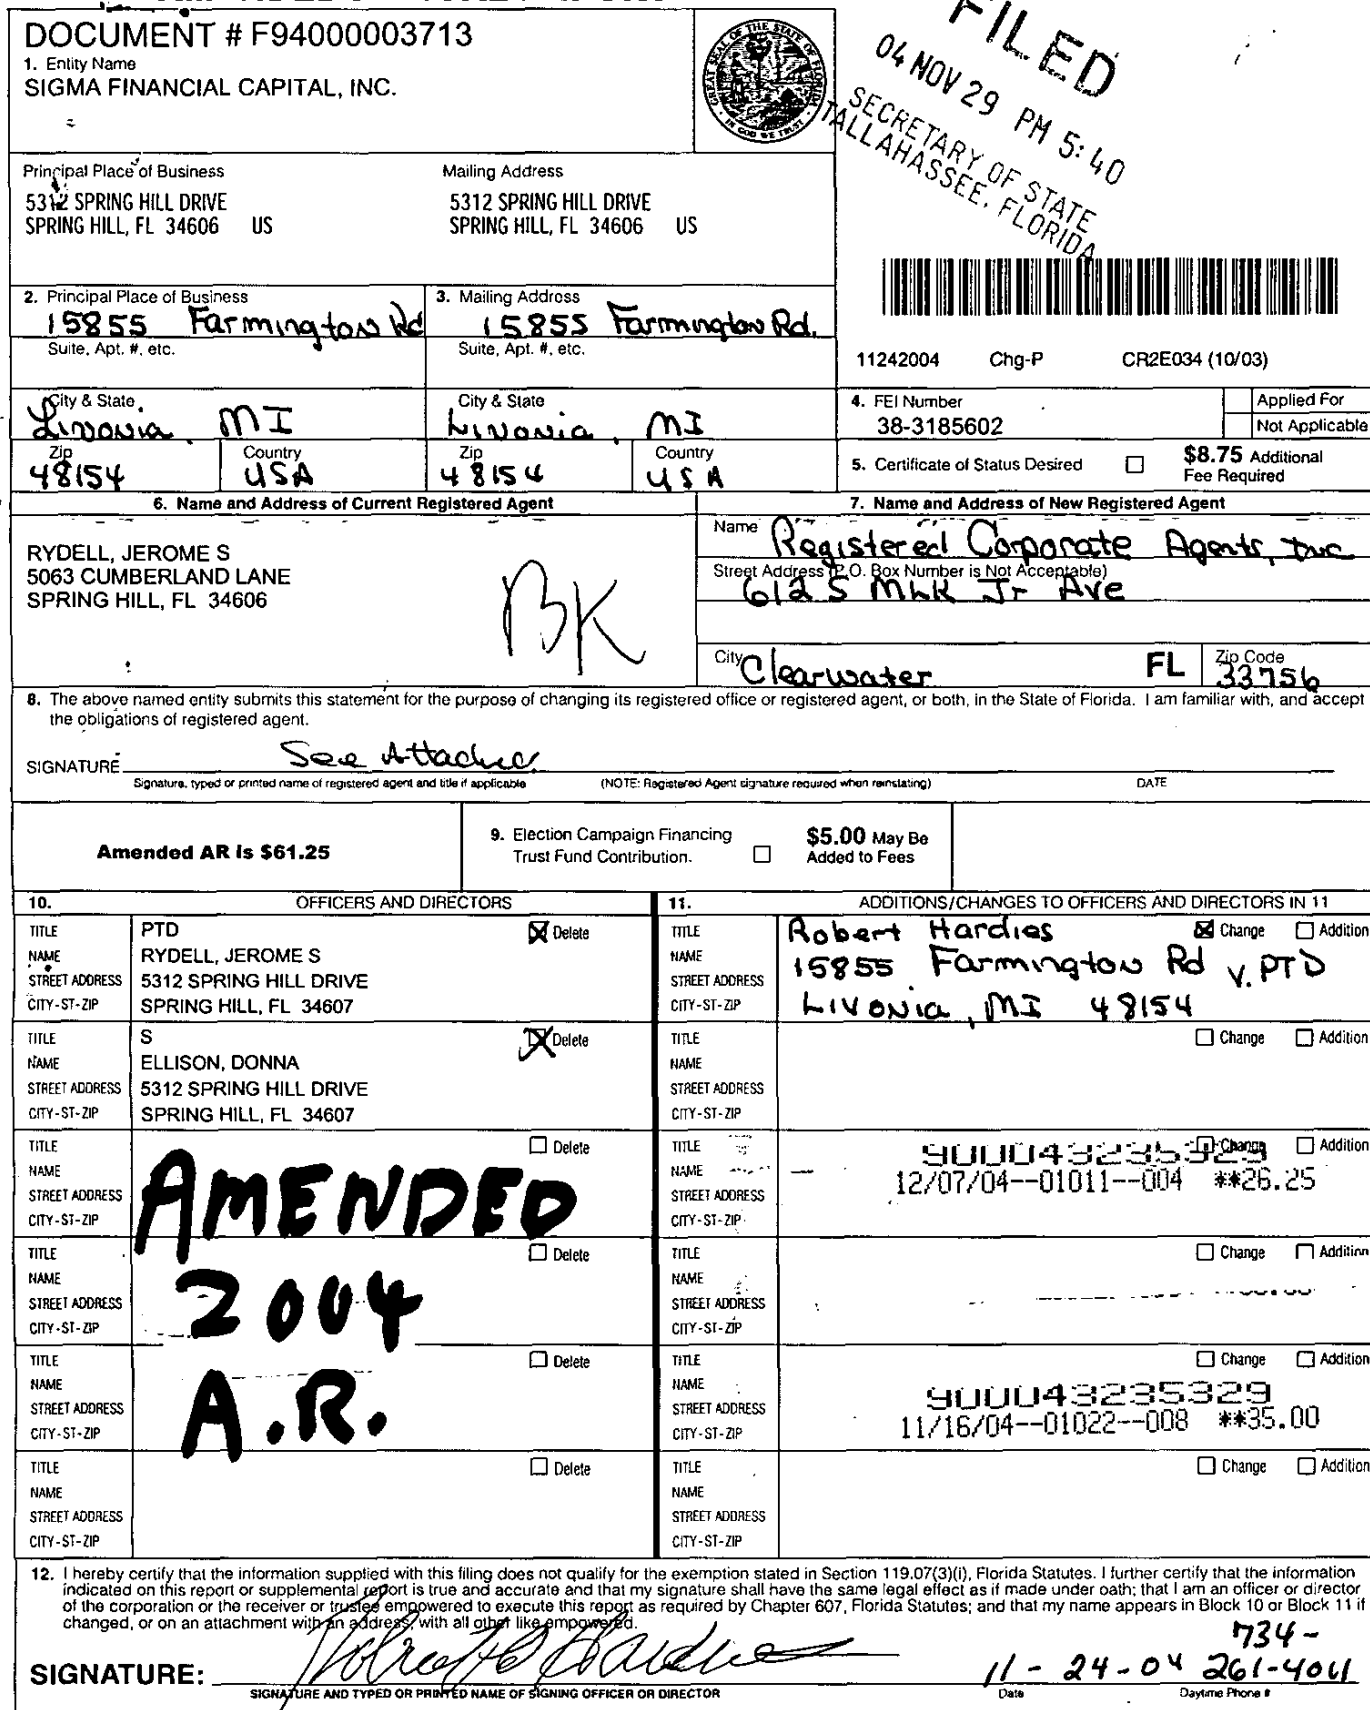 DOCUMENT # F94000003713
1. Entity Name
SIGMA FINANCIAL CAPITAL, INC.
GREAT SEAL OF THE STATE OF FLORIDA
IN GOD WE TRUST
FILED
04 NOV 29 PM 5:40
SECRETARY OF STATE
TALLAHASSEE, FLORIDA
Principal Place of Business
5312 SPRING HILL DRIVE
SPRING HILL, FL 34606 US
Mailing Address
5312 SPRING HILL DRIVE
SPRING HILL, FL 34606 US
2. Principal Place of Business
15855 Farmington Rd
Suite, Apt. #, etc.
City & State
Livonia, MI
Zip
48154
Country
USA
3. Mailing Address
15855 Farmington Rd.
Suite, Apt. #, etc.
City & State
Livonia, MI
Zip
48154
Country
USA
11242004 Chg-P CR2E034 (10/03)
4. FEI Number
38-3185602
Applied For
Not Applicable
5. Certificate of Status Desired
$8.75 Additional
Fee Required
6. Name and Address of Current Registered Agent
RYDELL, JEROME S
5063 CUMBERLAND LANE
SPRING HILL, FL 34606
BK
7. Name and Address of New Registered Agent
Name Registered Corporate Agents, Inc
Street Address (P.O. Box Number is Not Acceptable)
612 S MLK Jr Ave
City Clearwater FL Zip Code 33756
8. The above named entity submits this statement for the purpose of changing its registered office or registered agent, or both, in the State of Florida. I am familiar with, and accept
the obligations of registered agent.
SIGNATURE See Attached
Signature, typed or printed name of registered agent and title if applicable (NOTE: Registered Agent signature required when reinstating) DATE
Amended AR is $61.25
9. Election Campaign Financing
Trust Fund Contribution.
$5.00 May Be
Added to Fees
10. OFFICERS AND DIRECTORS
TITLE PTD Delete
NAME RYDELL, JEROME S
STREET ADDRESS 5312 SPRING HILL DRIVE
CITY-ST-ZIP SPRING HILL, FL 34607
TITLE S Delete
NAME ELLISON, DONNA
STREET ADDRESS 5312 SPRING HILL DRIVE
CITY-ST-ZIP SPRING HILL, FL 34607
TITLE Delete
NAME
STREET ADDRESS
CITY-ST-ZIP
AMENDED
TITLE Delete
NAME
STREET ADDRESS
CITY-ST-ZIP
2004
TITLE Delete
NAME
STREET ADDRESS
CITY-ST-ZIP
A.R.
TITLE Delete
NAME
STREET ADDRESS
CITY-ST-ZIP
11. ADDITIONS/CHANGES TO OFFICERS AND DIRECTORS IN 11
TITLE Robert Hardies Change Addition
NAME 15855 Farmington Rd V.PTD
STREET ADDRESS
CITY-ST-ZIP Livonia, MI 48154
TITLE Change Addition
NAME
STREET ADDRESS
CITY-ST-ZIP
TITLE 900043235329 Change Addition
NAME 12/07/04--01011--004 **26.25
STREET ADDRESS
CITY-ST-ZIP
TITLE Change Addition
NAME
STREET ADDRESS
CITY-ST-ZIP
TITLE Change Addition
NAME 900043235329
STREET ADDRESS 11/16/04--01022--008 **35.00
CITY-ST-ZIP
TITLE Change Addition
NAME
STREET ADDRESS
CITY-ST-ZIP
12. I hereby certify that the information supplied with this filing does not qualify for the exemption stated in Section 119.07(3)(i), Florida Statutes. I further certify that the information
indicated on this report or supplemental report is true and accurate and that my signature shall have the same legal effect as if made under oath; that I am an officer or director
of the corporation or the receiver or trustee empowered to execute this report as required by Chapter 607, Florida Statutes; and that my name appears in Block 10 or Block 11 if
changed, or on an attachment with an address, with all other like empowered.
SIGNATURE: 11-24-04 734-261-4011
SIGNATURE AND TYPED OR PRINTED NAME OF SIGNING OFFICER OR DIRECTOR Date Daytime Phone #